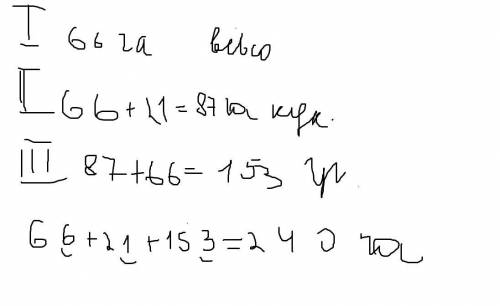 I 66 га
II 66+21=87 га кук.
III 87+66=153
66+21+153=240 га